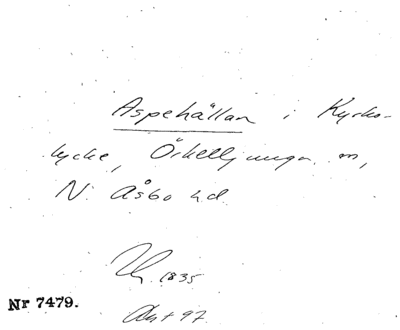 Aspehällan i Kyrko-
lycke, Örkelljunga sn,
N. Åsbo hd
1835
Nr 7479.
Akt 97